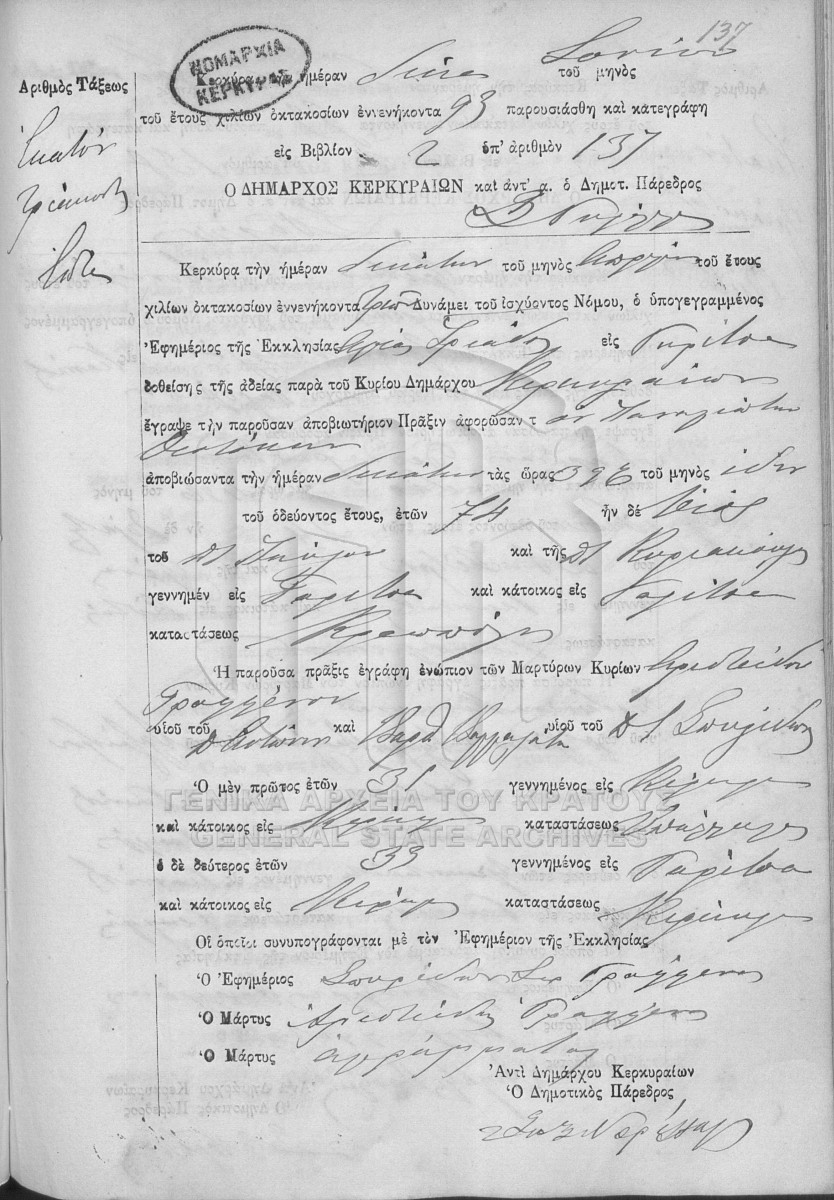 137
ΝΟΜΑΡΧΙΑ
ΚΕΡΚΥΡΑΣ
Ἀριθμὸς Τάξεως
Κερκύρᾳ τῇ ἡμέραν δέκα τοῦ μηνὸς Ἰουνίου
τοῦ ἔτους χιλίων ὀκτακοσίων ἐννενήκοντα 93 παρουσιάσθη καὶ κατεγράφη
εἰς Βιβλίον 2 ὑπ' ἀριθμὸν 137
Ἑκατόν
τριάκοντα
ἑπτά
Ο ΔΗΜΑΡΧΟΣ ΚΕΡΚΥΡΑΙΩΝ καὶ ἀντ' α. ὁ Δημοτ. Πάρεδρος
Κερκύρᾳ τὴν ἡμέραν δεκάτην τοῦ μηνὸς τοῦ ἔτους
χιλίων ὀκτακοσίων ἐννενήκοντα τρία Δυνάμει τοῦ ἰσχύοντος Νόμου, ὁ ὑπογεγραμμένος
Ἐφημέριος τῆς Ἐκκλησίας Ἁγίας Τριάδος εἰς Γαρίτσα
δοθείσης τῆς ἀδείας παρὰ τοῦ Κυρίου Δημάρχου Κερκυραίων
ἔγραψε τὴν παροῦσαν ἀποβιωτήριον Πρᾶξιν ἀφορῶσαν τ ὸν Παναγιώτην
Θεοτόκην
ἀποβιώσαντα τὴν ἡμέραν δεκάτην τὰς ὥρας 3 τοῦ μηνὸς ἰδίου
τοῦ ὁδεύοντος ἔτους, ἐτῶν 74 ἦν δὲ υἱὸς
τοῦ Παύλου καὶ τῆς Κυριακούλας
γεννημέν εἰς Γαρίτσα καὶ κάτοικος εἰς Γαρίτσα
καταστάσεως
Ἡ παροῦσα πρᾶξις ἐγράφη ἐνώπιον τῶν Μαρτύρων Κυρίων Ἀριστείδου
υἱοῦ τοῦ Ἀντωνίου καὶ υἱοῦ τοῦ Σπυρίδωνος
Ὁ μὲν πρῶτος ἐτῶν 31 γεννημένος εἰς Κέρκυρα
καὶ κάτοικος εἰς Κέρκυρα καταστάσεως ὑπάλληλος
ὁ δὲ δεύτερος ἐτῶν 33 γεννημένος εἰς Γαρίτσα
καὶ κάτοικος εἰς Κέρκυρα καταστάσεως
Οἱ ὁποῖοι συνυπογράφονται μὲ τὸν Ἐφημέριον τῆς Ἐκκλησίας
Ὁ Ἐφημέριος Σπυρίδων
Ὁ Μάρτυς Ἀριστείδης
Ὁ Μάρτυς ἀγράμματος
Ἀντὶ Δημάρχου Κερκυραίων
Ὁ Δημοτικὸς Πάρεδρος
ΓΕΝΙΚΑ ΑΡΧΕΙΑ ΤΟΥ ΚΡΑΤΟΥΣ
GENERAL STATE ARCHIVES